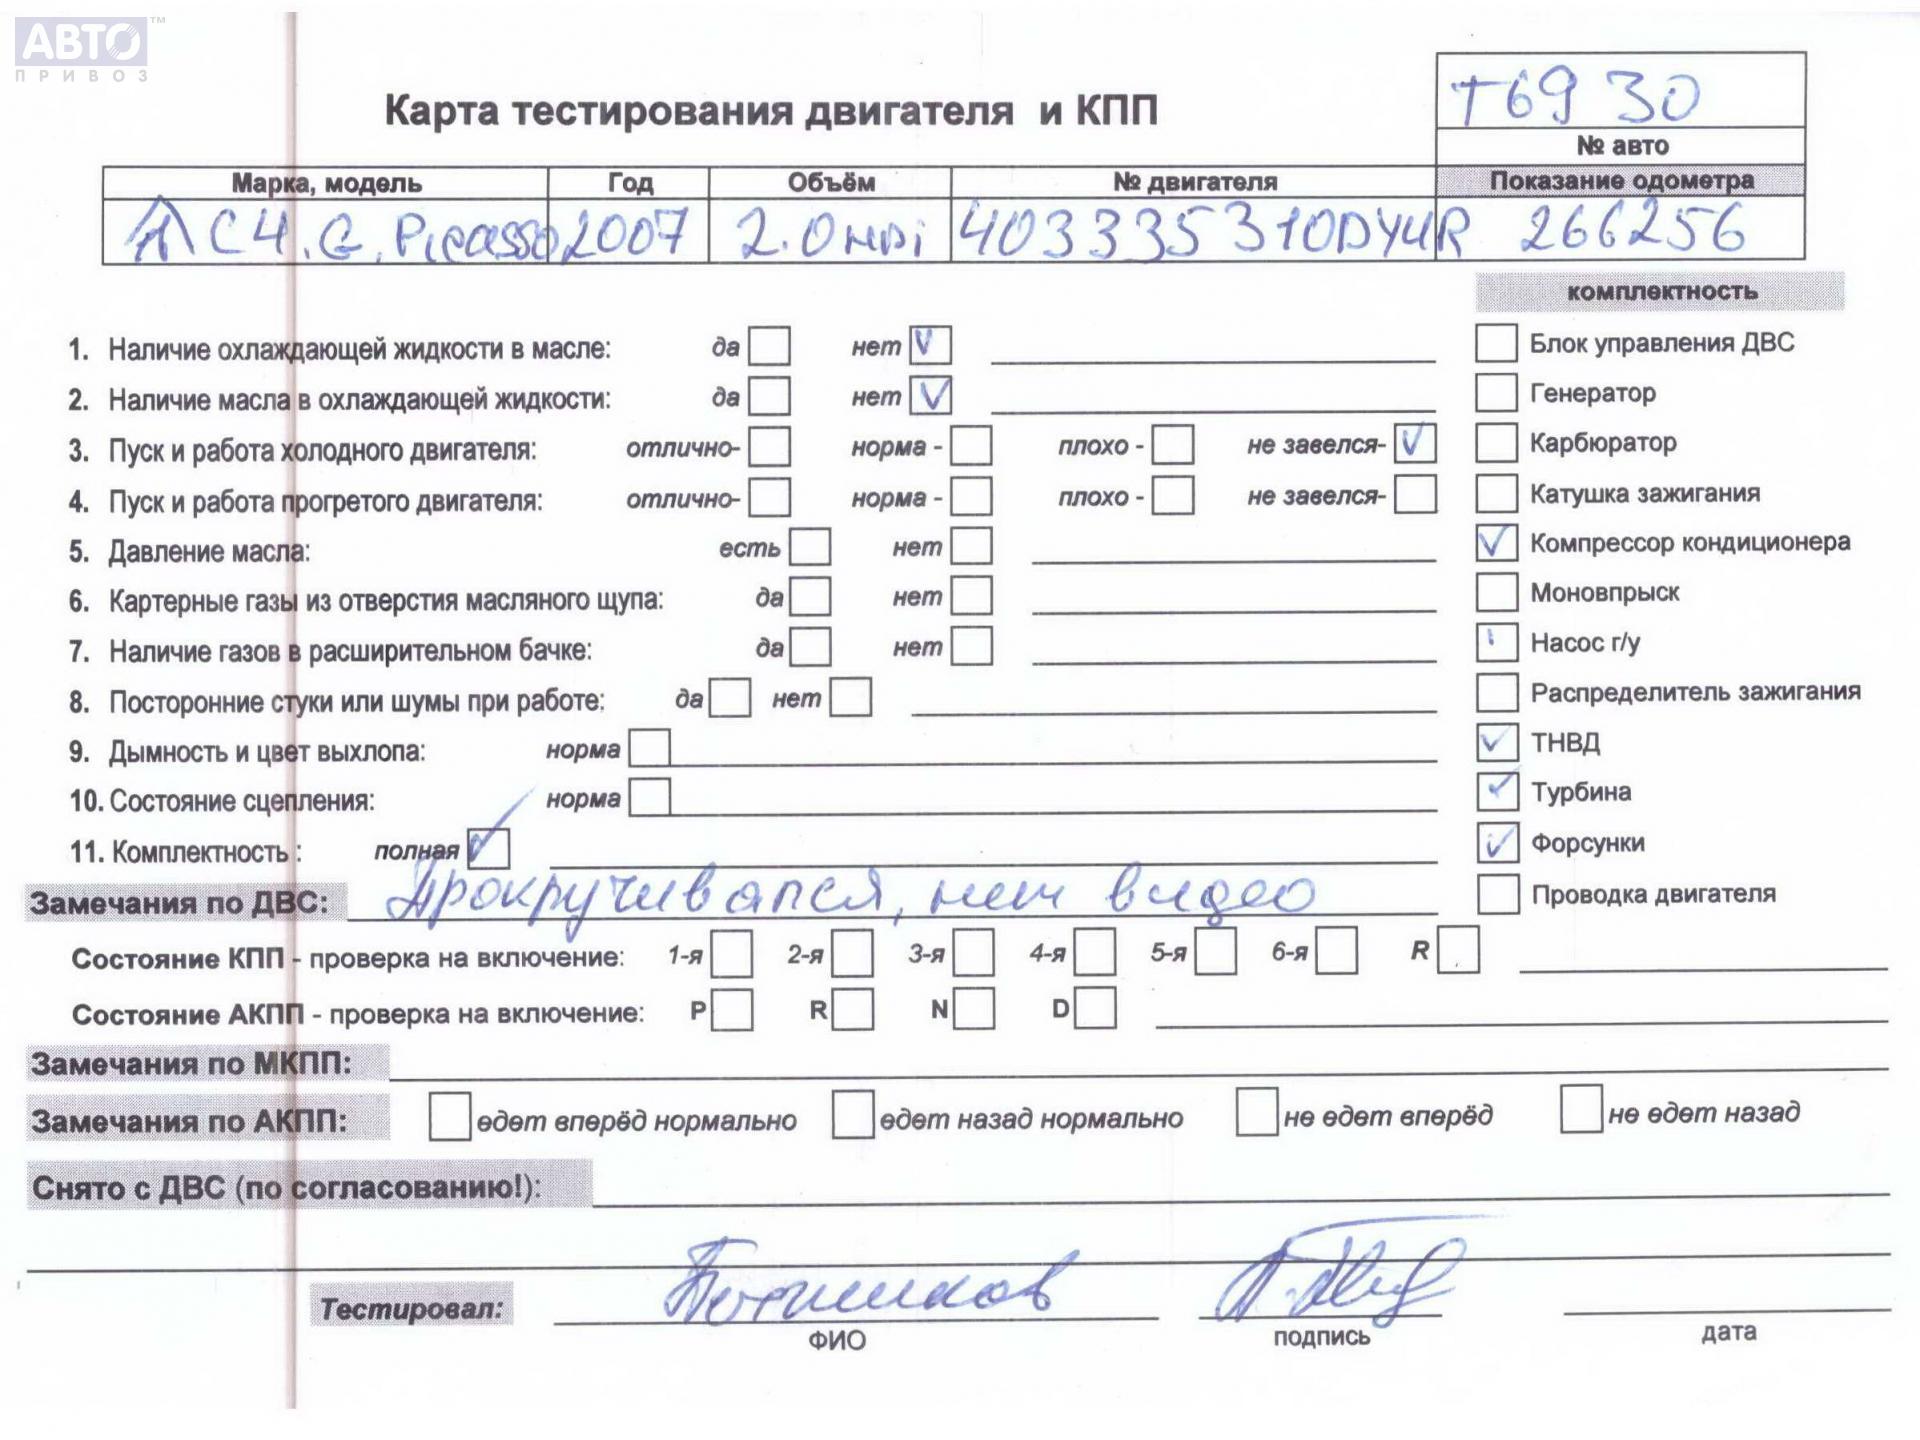 АВТО™
ПРИВОЗ
Карта тестирования двигателя и КПП
Т69 30
№ авто
Марка, модель Год Объём № двигателя Показание одометра
C4. G. Picasso 2007 2.0 HDi 403335310DYUR 266256
комплектность
1. Наличие охлаждающей жидкости в масле: да нет V
Блок управления ДВС
2. Наличие масла в охлаждающей жидкости: да нет V
Генератор
3. Пуск и работа холодного двигателя: отлично- норма - плохо - не завелся- V
Карбюратор
4. Пуск и работа прогретого двигателя: отлично- норма - плохо - не завелся-
Катушка зажигания
5. Давление масла: есть нет
V Компрессор кондиционера
6. Картерные газы из отверстия масляного щупа: да нет
Моновпрыск
7. Наличие газов в расширительном бачке: да нет
Насос г/у
8. Посторонние стуки или шумы при работе: да нет
Распределитель зажигания
9. Дымность и цвет выхлопа: норма
V ТНВД
10. Состояние сцепления: норма
V Турбина
11. Комплектность : полная V
V Форсунки
Замечания по ДВС: Прокручивался, нет видео
Проводка двигателя
Состояние КПП - проверка на включение: 1-я 2-я 3-я 4-я 5-я 6-я R
Состояние АКПП - проверка на включение: P R N D
Замечания по МКПП:
Замечания по АКПП: едет вперёд нормально едет назад нормально не едет вперёд не едет назад
Снято с ДВС (по согласованию!):
Тестировал:
ФИО подпись дата